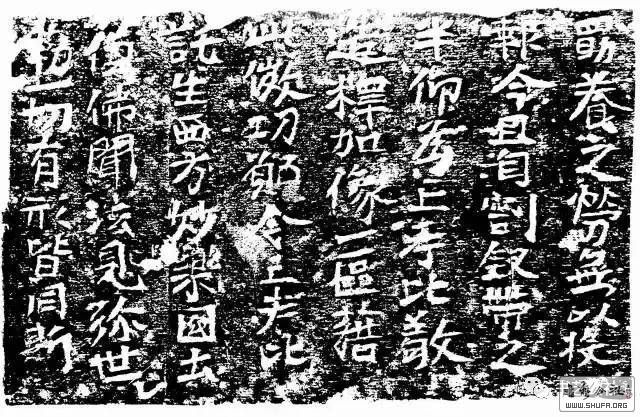 劬養之勞無以投
報今且自割釵帶之
半仰為亡考比敬
造釋加像二區藉
此微功願令亡考比
託生西方妙樂國土
值佛聞法見弥世
勒一切有形皆同斯
WWW.SHUFA.ORG